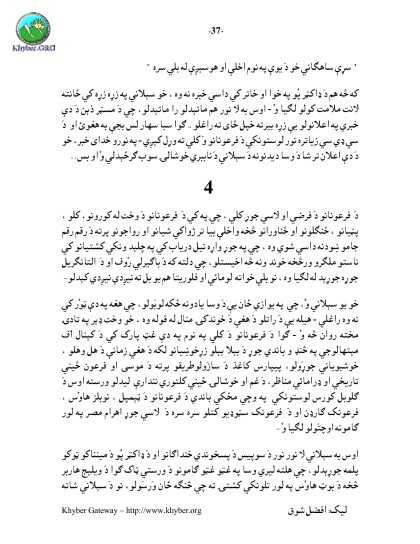 -37-
Khyber.ORG
" سړي ساهګاني خو د يوې په نوم اخلي او هوسېږي له بلې سره "
که څه هم د ډاکټر پُو په خوا او خاتر کي داسي خبره نه وه ، خو سېلاني په زړه زړه کي ځانته
لانت ملامت کولو لګيا وُ - اوس به لا نور هم ماتېدلو را ماتېدلو، چي د مسټر ذين د دې
خبرې په اعلانولو يې زړه بېرته خپل ځای ته راغلو .. ګوا سبا سهار لس بجې به هغوئ او د
سي ډي سي زياتره نور لوستونکي د فرعونانو د کلي ته ور ل کېږي- په نورو خدای خبر، خو
د دې اعلان تر شا د وسا ديدنونه د سېلاني د نابېري خوشالۍ سوب ګرځېدلي وُ او بس..
4
د فرعونانو د فرضي او لاسي جوړ کلي ، چي په کې د فرعونانو د وخت له کورونو، کلو ،
پټيانو ، ځنګلونو او ځناورانو څخه واخلې بيا تر ژواکې شيانو او رواجونو پرته د رقم رقم
جامو نېودنه داسي شوې وه ، چي په جوړ واړه نيل درياب کي په چلېد ونکې کشتيانو کي
ناستو ملګرو ورڅخه خوند ونه څه اخيستلو ، چي دلته که د باګېرلي رُوف او د التانګريل
جوړه جوړېد له لګيا وه ، نو بلي خواته لوماتي او فلوريتا هم يو بل ته نېږدې نېږدې کېدلو-
خو يو سېلاني وُ، چي په يوازې ځان يې د وسا يادونه ځکه لوَبولو ، چي هغه په دې تور کي
نه وه راغلې - هيله يې د راتلو د هغې د خوندکۍ. متال له قوله وه ، خو وخت ډېر په تادۍ
مخته روان څه وُ - ګوا د فرعونانو د کلي په نوم په دې غټ پارک کي د کېنال آف
ميتهالوجي په څنډ و باندې جوړ د ببلا ببلو زړخونيانو لکه د هغې زمانې د هل وهلو ،
خوشبويانې جوړولو، پېپارس کاغذ د سازولوطريقو پرته د موسی او فرعون ځينې
تاريخي او ډرامائي مناظر، د غم او خوشالۍ ځينې کلتوري نندارې ليدلو ورسته اوس د
ګلوبل کورس لوستونکې په وچې مځکې باندې د فرعونانو د ټيمپل ، نوبلز هاوُس ،
فرعونک ګارډن او د فرعونک سټوډيو کتلو سره سره د لاسي جوړ اهرام مصر په لور
ګامونه اوچتولو لګيا وُ -
اوس به سېلاني لا نور نور د سوېيس د پسخوندې خنداګانو او د ډاکټر پُو د ميناناکو ټوکو
پلمه جوړېدلو، چي هلته لېري وسا په غټو غټو ګامونو د ورستې ټاک ګوا د ويليج هاربر
څخه د بوټ هاوُس په لور تلونکې کشتۍ ته چي څنګه ځان ورَسولو، نو د سېلاني شاته
Khyber Gateway – http://www.khyber.org
ليک: افضل شوق